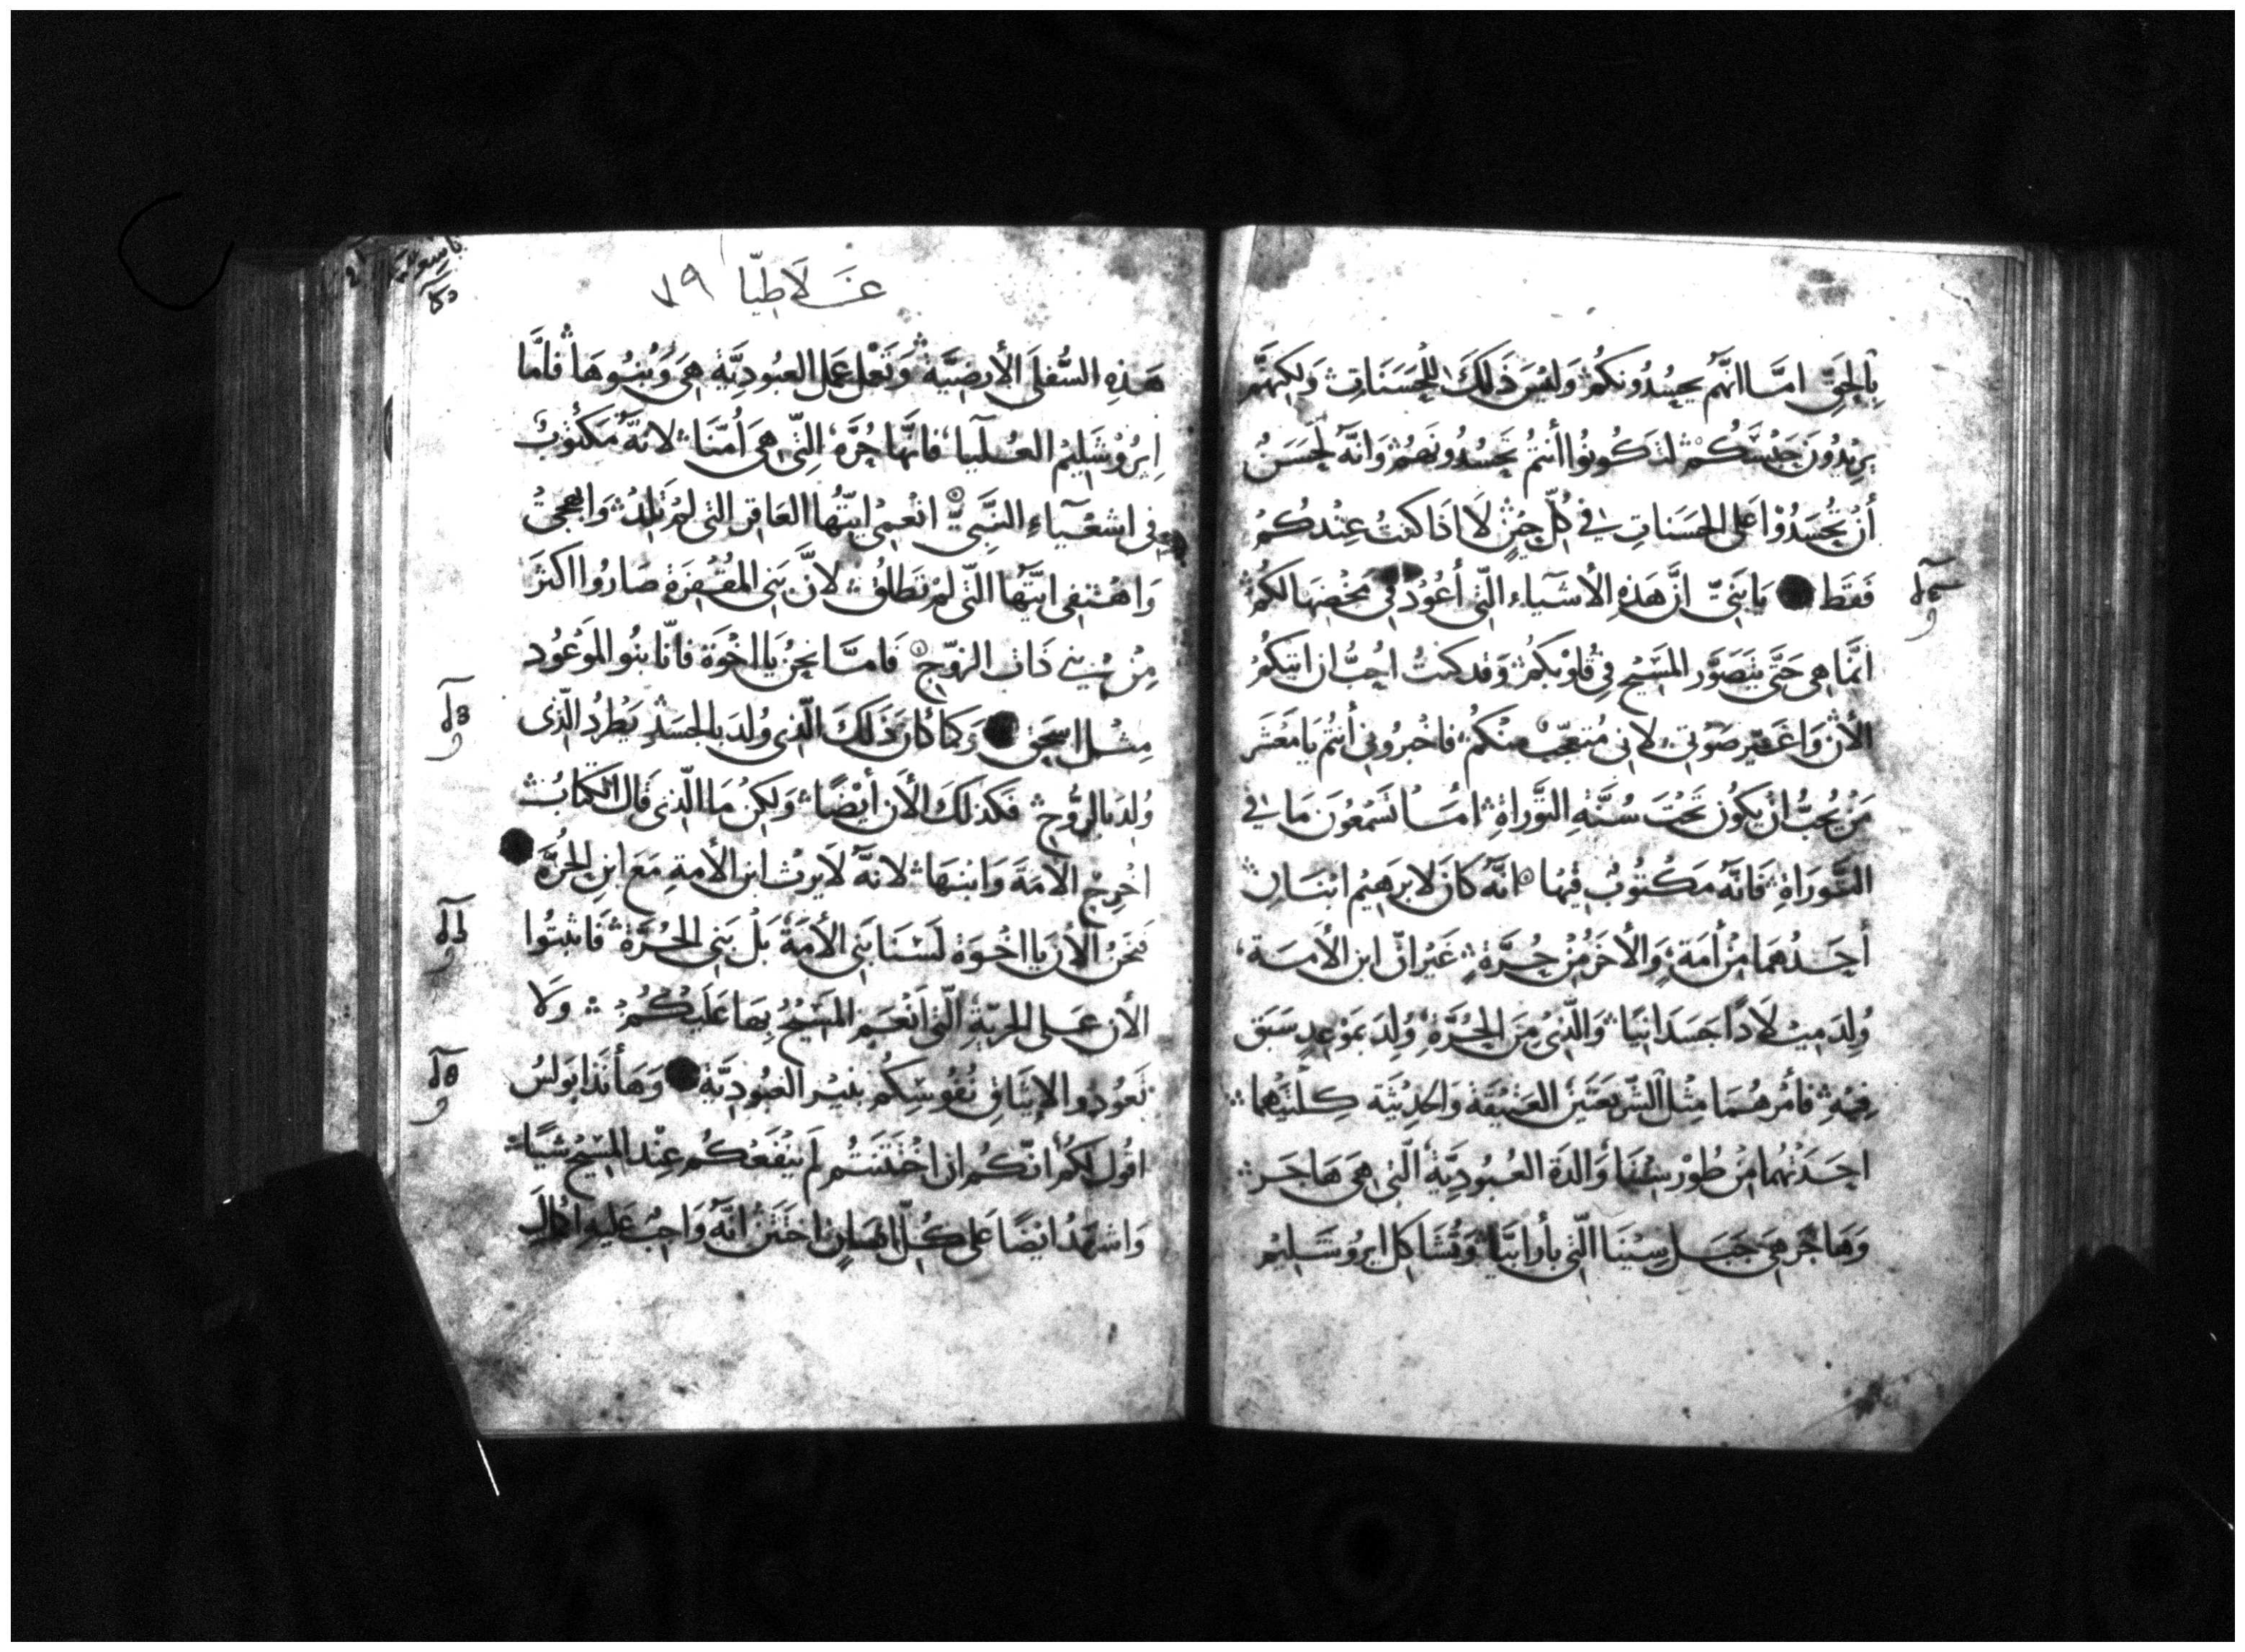 بِالحَقِّ اما انَّهم يحسُدُونَكُمْ وَليسَ ذَلكَ للحَسَنَاتِ وَلكِنهَّم
يرِيْدُونَ لتَكُونُوا أنتمُ تحَسُدُونَهُمْ وَانَّهُ لحَسَنٌ
أنْ تُحْسَدُوْا عَلى الحسَناتِ فِي كلِّ حِيْنٍ لَا اذَا كنتُ عِنْدكُمْ
فَقَط يَا بَنِيَّ انَّ هَذِهِ الأشيَاء الّتِي أعُوْد فِي مخْضِهَا لكُمْ
انَّما هِى حَتَّى يتَصَوَّر المسَيْح فِي قُلوْبكُمْ وَقد كنتُ احِبُّ ان اتيَكُمْ
الأنْ وَاغَيّر صَوْتِي لِانِى مُتعجّبٌ مِنْكُمْ فاخبرُونِى أنتُمْ يَا مَعْشَر
مَنْ يُحِبُّ انْ يكوُن تحْتَ سُنَّةِ التَّوْراةِ امَا تَسْمَعُونَ مَا فِي
التَّوْرَاةِ فَانَّهُ مَكْتُوبٌ فِيْها انَّهُ كانَ لابرهيْم ابْنَانِ
أحَدُهمَا مِنْ أمَةٍ وَالأخَرُ مِنْ حُرَّةٍ غَيْرَ انَّ ابن الأمَة
وُلِدَ مِيْلَادًا جَسَدَانيَا وَالّذِى مِنَ الحُرَّةِ وُلِدَ بمَوْعِدٍ سَبَق
فِيْهِ فأمْرهُمَا مِثْل الشّرِيعَتَيْن العَتِيْقَة وَالحَدِيْثَة كِلْتَيْهما
احَدتُهُما مِنْ طُوْر سِيْنَا وَالدَة العُبُودِيَّة الّتِى هِىَ هَاجَر
وَهَاجَر هِىَ جَبَل سِيْنَا الّتِى بأرابيَّا وَتُشَاكِل ايرُوْشَلِيْم
غَلَاطِيّا ٧٩
هَذِهِ السُّفلَى الأرضِيَّة وَتَعْمل عَمل العبُودِيَّة هِىَ وَبُنُوهَا فأمَّا
اِيرُوْشَلِيْمُ العُليَا فانَّها حُرَّة الِتِّى هِىَ أمّنَا لانَّهُ مَكْتُوبٌ
فِى اشعْيَاءِ النَّبِىّ انعمِى ايّتُها العَاقِر التِى لمْ تَلِدْ وَابهجِى
وَاهْتفِى ايَّتُها الّتِى لمْ تطلق لانَّ بَنِى المقْفِرَة صَارُوا اكثَر
مِنْ بَنِي ذَات الزوّج فَامَّا نحنُ يَا اخْوَة فانّا بنُو الموْعُود
مِثل اسحَق وَكمَا كانَ ذَلكَ الّذِى وُلدَ بالجسَدِ يَطْردُ الّذِى
وُلِدَ بالرُّوْح فكذلكَ الأن أيْضًا وَلكِنْ مَا الّذِى قَالَ الكتَابُ
اخْرِجْ الأمَةَ وَابنهَا لانَّهُ لَا يرِثْ ابن الأمةِ مَعَ ابن الحُرَّة
فَنَحنُ الأن يَا اخْوَة لَسْنَا بَنِى الأمَة بَلْ بَنِى الحُرَّة فَاثبتُوا
الأن عَلى الحريّةِ الّتِى أنْعَم المَسِيْحُ بهَا عَلَيْكُمْ وَلَا
تَعُودُوا لإيثَاقِ نُفُوسِكُم بِنيْر العبُودِيَّة وَهَا أنَذَا بَولسُ
اقُول لكُمْ انّكُم ان اخْتَتَنتُم لَم يَنْفَعكُم عِنْد المسِيْح شيْئًا
وَاشهَدُ ايْضًا عَلى كُلّ انسَانٍ اختَتَنَ انَّهُ وَاجِبٌ عَليهِ اكمَال